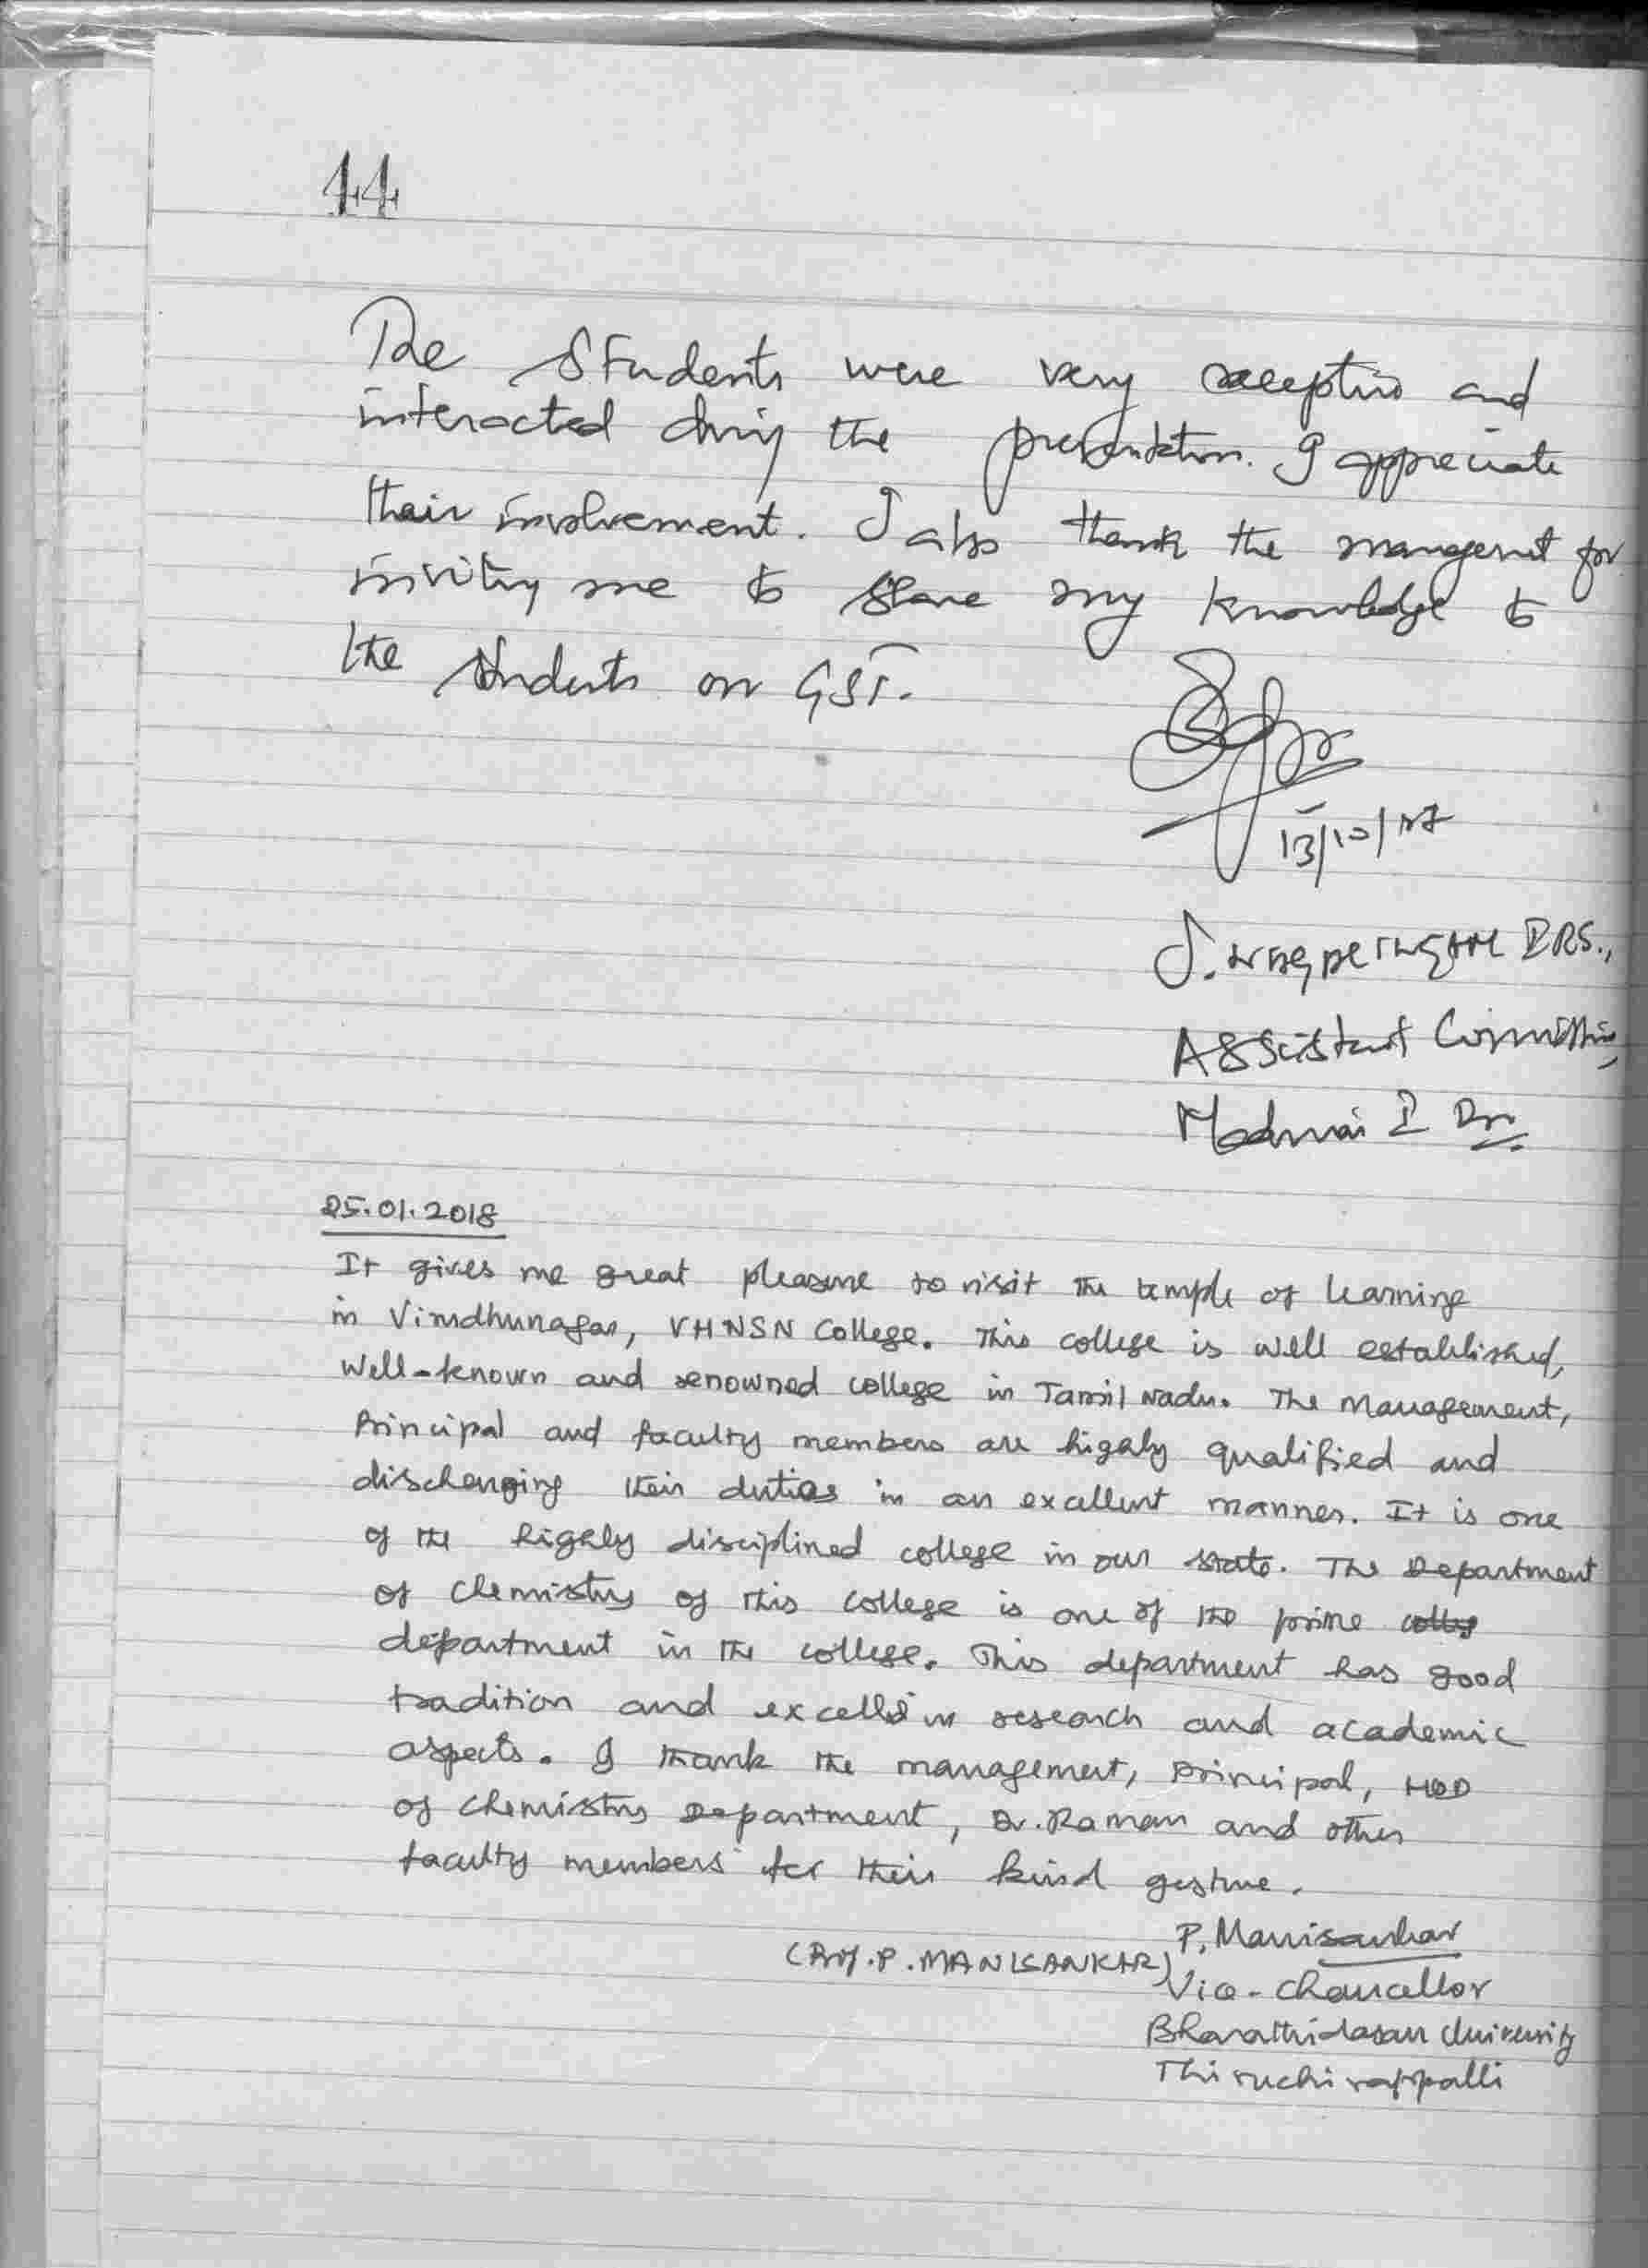 44
The Students were very receptive and
interacted during the presentation. I appreciate
their involvement. I also thank the management for
inviting me to share my knowledge to
the students on GST.
13/10/17
Assistant
Madurai I Dn
25.01.2018
It gives me great pleasure to visit the temple of learning
in Virudhunagar, VHNSN College. This college is well established,
well-known and renowned college in Tamil Nadu. The Management,
Principal and faculty members are highly qualified and
discharging their duties in an excellent manner. It is one
of the highly disciplined college in our state. The Department
of Chemistry of this college is one of the prime
department in the college. This department has good
tradition and in research and academic
aspects. I thank the management, Principal, HOD
of Chemistry Department, Dr. Raman and other
faculty members for their kind gesture.
P. Manisankar
(Prof. P. MANISANKAR)
Vice-Chancellor
Bharathidasan University
Thiruchirappalli